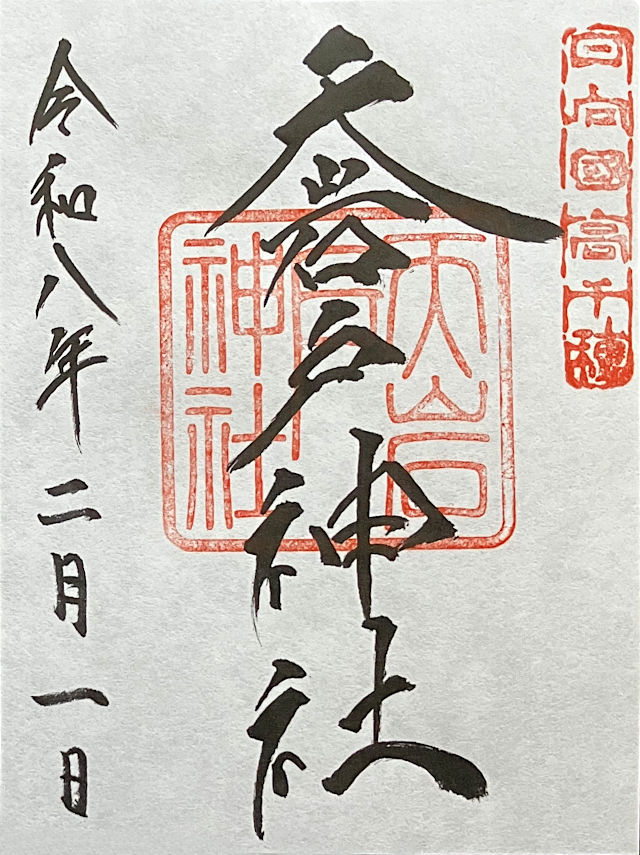 日向國高千穂
天岩戸神社
天岩戸神社
令和八年二月一日